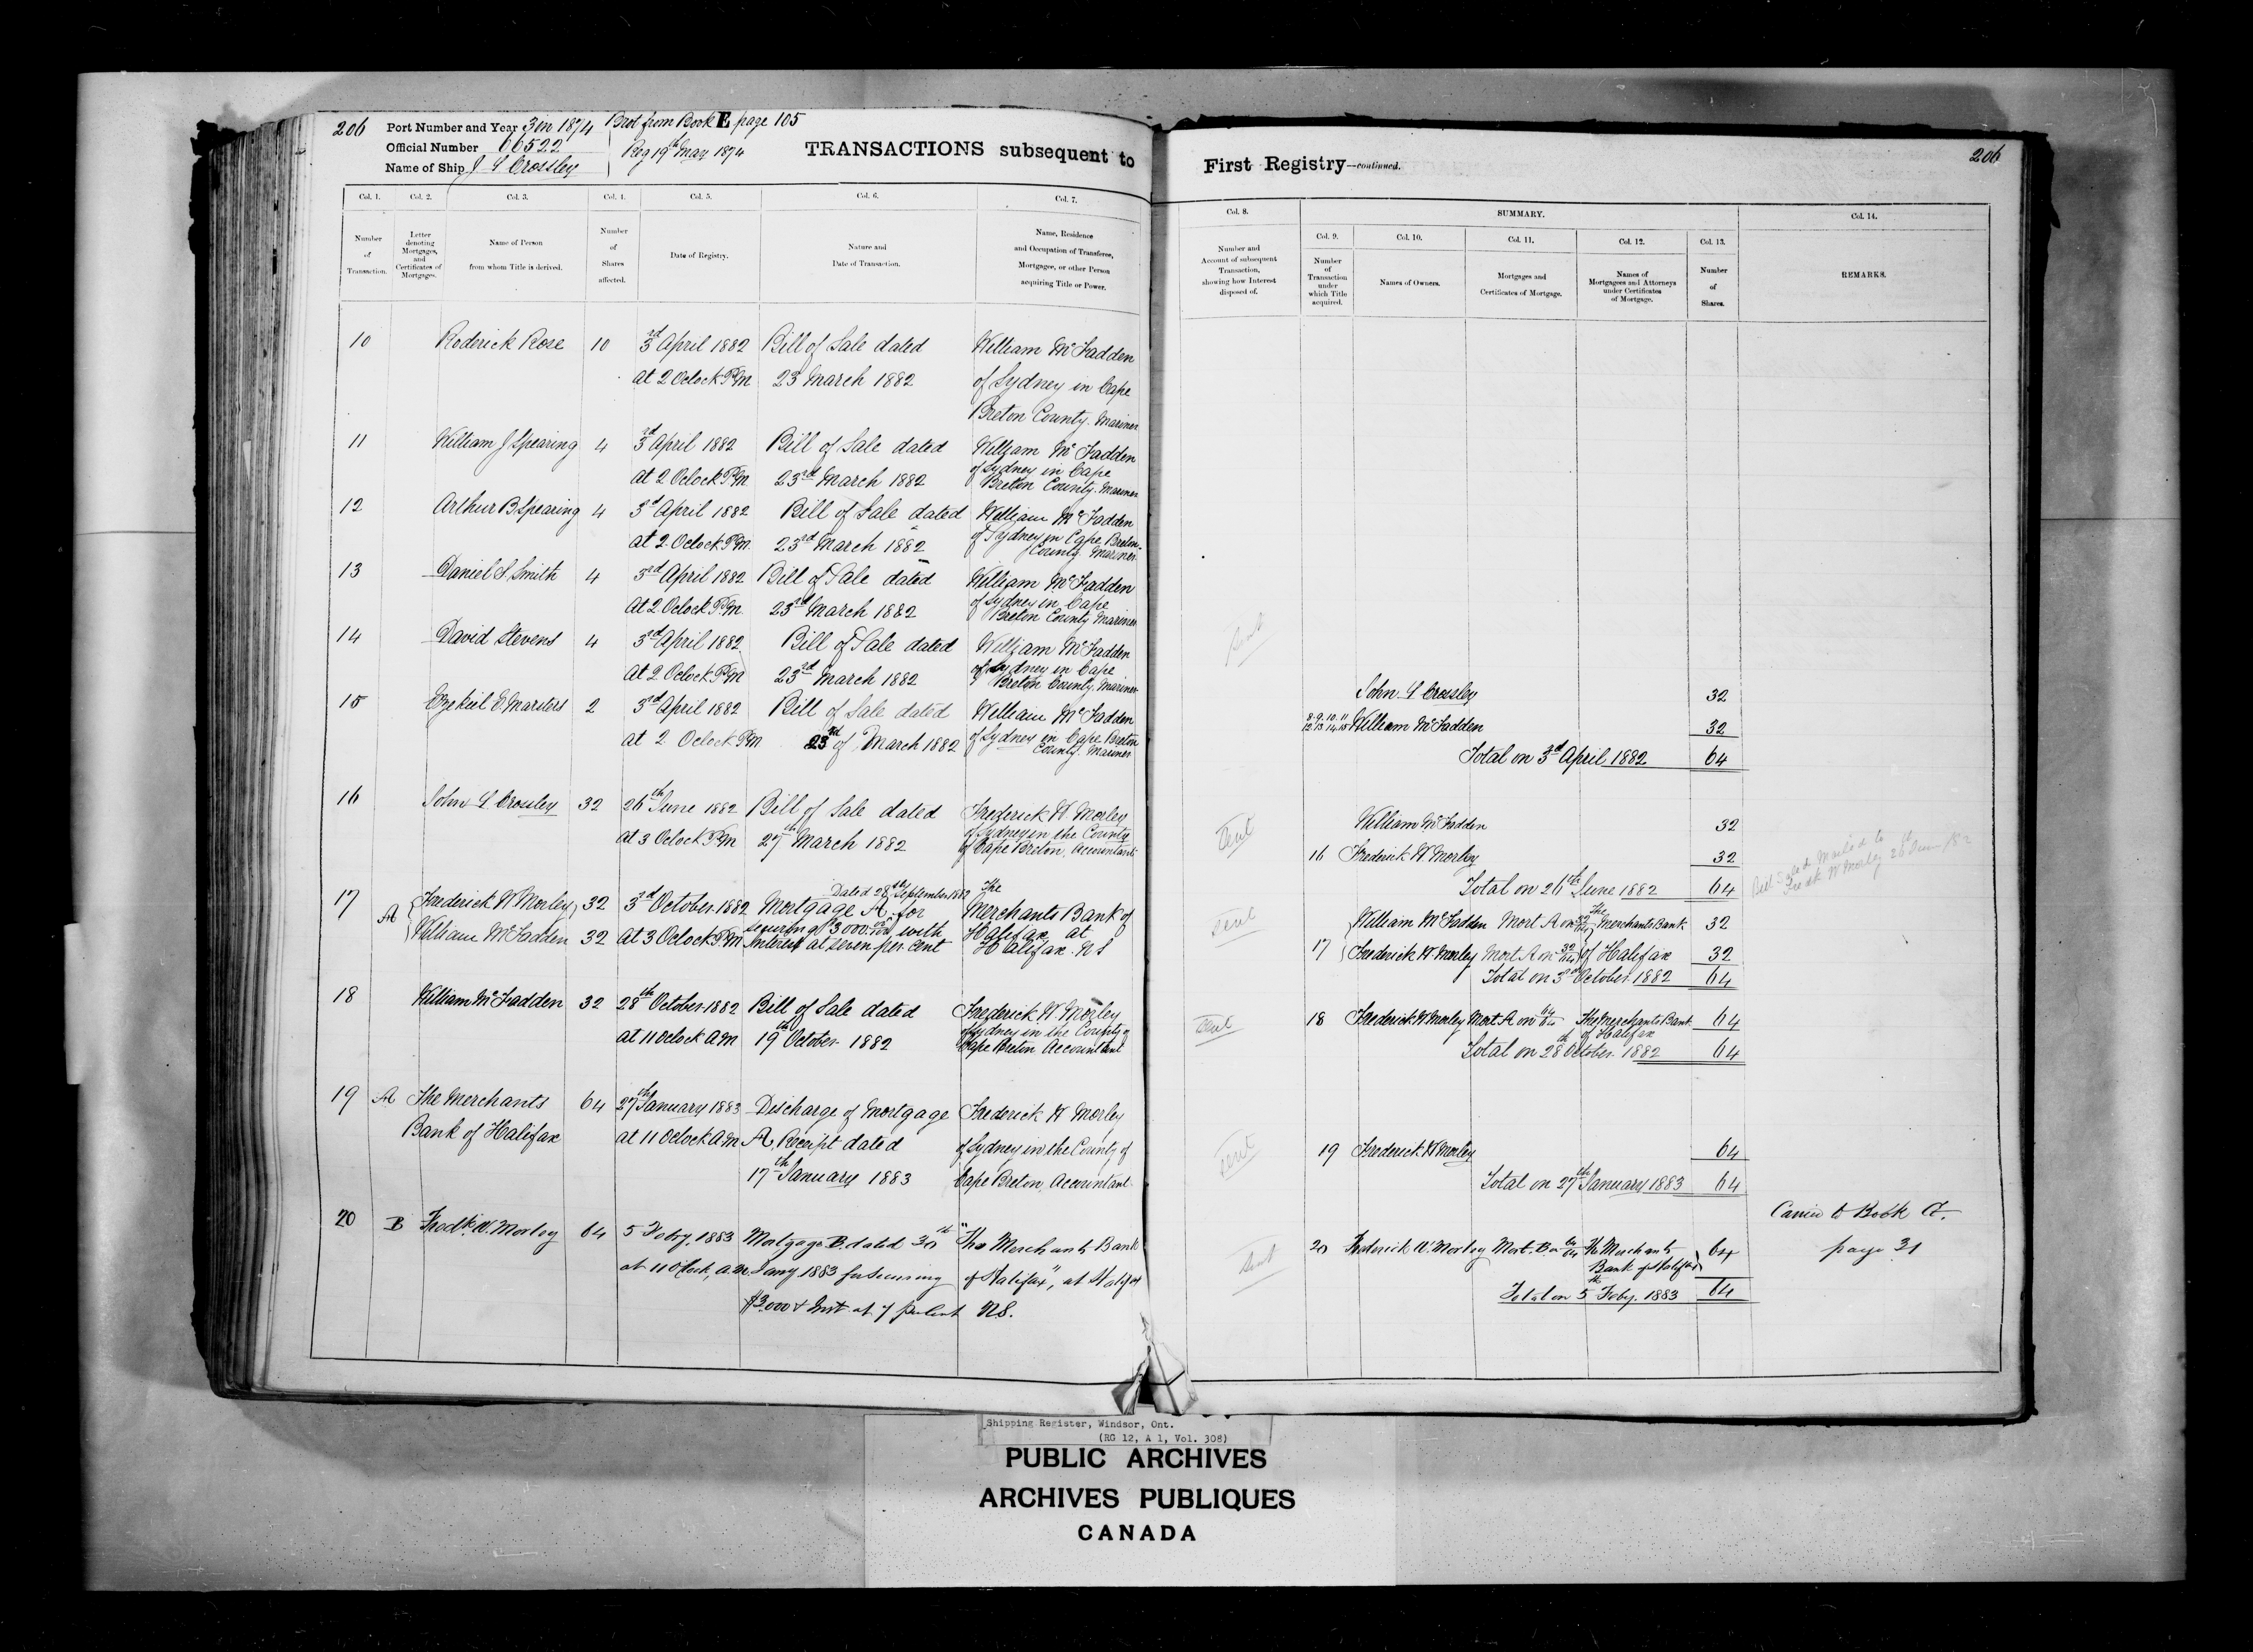 206 Port Number and Year 3 in 1874 Brot from Book E page 105
Official Number 66522 Reg 19th May 1874
Name of Ship J L Crossley
TRANSACTIONS subsequent to
Col. 1. Col. 2. Col. 3. Col. 4. Col. 5. Col. 6. Col. 7.
Number of Transaction.
Letter denoting Mortgages, and Certificates of Mortgages.
Name of Person from whom Title is derived.
Number of Shares affected.
Date of Registry.
Nature and Date of Transaction.
Name, Residence and Occupation of Transferee, Mortgagee, or other Person acquiring Title or Power.
10 Roderick Rose 10 3rd April 1882 Bill of Sale dated William McFadden
at 2 Oclock P.M 23 March 1882 of Sydney in Cape
Breton County. Mariner
11 William J Spearing 4 3rd April 1882 Bill of Sale dated William McFadden
at 2 Oclock P.M. 23rd March 1882 of Sydney in Cape
Breton County. Mariner
12 Arthur B Spearing 4 3d April 1882 Bill of Sale dated William McFadden
at 2 Oclock P.M. 23rd March 1882 of Sydney in Cape Breton
County Mariner
13 Daniel S. Smith 4 3rd April 1882 Bill of Sale dated William McFadden
at 2 Oclock P.M. 23rd March 1882 of Sydney in Cape
Breton County Mariner
14 David Stevens 4 3d April 1882 Bill of Sale dated William McFadden
at 2 Oclock P.M 23rd March 1882 of Sydney in Cape
Breton County. Mariner
15 Ezekiel E. Marsters 2 3rd April 1882 Bill of Sale dated William McFadden
at 2 Oclock P.M. 23rd of March 1882 of Sydney in Cape Breton
County. Mariner
16 John L Crossley 32 26th June 1882 Bill of Sale dated Frederick W. Morley
at 3 Oclock P.M 27th March 1882 of Sydney in the County
of Cape Breton, Accountant
Dated 28th September 1882 The
17 A Frederick W Morley 32 3d October 1882 Mortgage A for Merchants Bank of
securing $3000 with Halifax at
William McFadden 32 at 3 Oclock P.M Interest at seven per cent Halifax N S
18 William McFadden 32 28th October 1882 Bill of Sale dated Frederick W. Morley
at 11 Oclock A.M 19th October 1882 of Sydney in the County of
Cape Breton Accountant
19 A The Merchants 64 27th January 1883 Discharge of Mortgage Frederick W Morley
Bank of Halifax at 11 Oclock A.M A, Receipt dated of Sydney in the County of
17th January 1883 Cape Breton, Accountant
20 B Fredk. W. Morley 64 5 Feby. 1883 Mortgage B. dated 30th "The Merchants Bank
at 11 Oclock, a.m. Jany 1883 for securing of Halifax", at Halifax
$3,000 & Inst at 7 per cent N.S.
First Registry—continued. 206
Col. 8. SUMMARY. Col. 14.
Col. 9. Col. 10. Col. 11. Col. 12. Col. 13.
Number and Account of subsequent Transaction, showing how Interest disposed of.
Number of Transaction under which Title acquired.
Names of Owners.
Mortgages and Certificates of Mortgage.
Names of Mortgagees and Attorneys under Certificates of Mortgage.
Number of Shares.
REMARKS.
Sent
John L Crossley 32
8. 9. 10. 11
12 13 14. 15 William McFadden 32
Total on 3d April 1882 64
Sent William McFadden 32
16 Frederick W Morley 32
Total on 26th June 1882 64
Bill Sale Mailed to
Fredk W Morley
Sent William McFadden Mort A on 32/64 The Merchants Bank 32
17 Frederick W. Morley Mort A on 32/64 of Halifax 32
Total on 3rd October 1882 64
Sent 18 Frederick W Morley Mort A on 64/64 The Merchants Bank 64
of Halifax
Total on 28th October. 1882 64
Sent 19 Frederick W Morley 64
Total on 27th January 1883 64
Carried to Book G.
page 31
Sent 20 Frederick W. Morley Mort. B on 64/64 The Merchants 64
Bank of Halifax
Total on 5th Feby. 1883 64
Shipping Register, Windsor, Ont.
(RG 12, A 1, Vol. 308)
PUBLIC ARCHIVES
ARCHIVES PUBLIQUES
CANADA